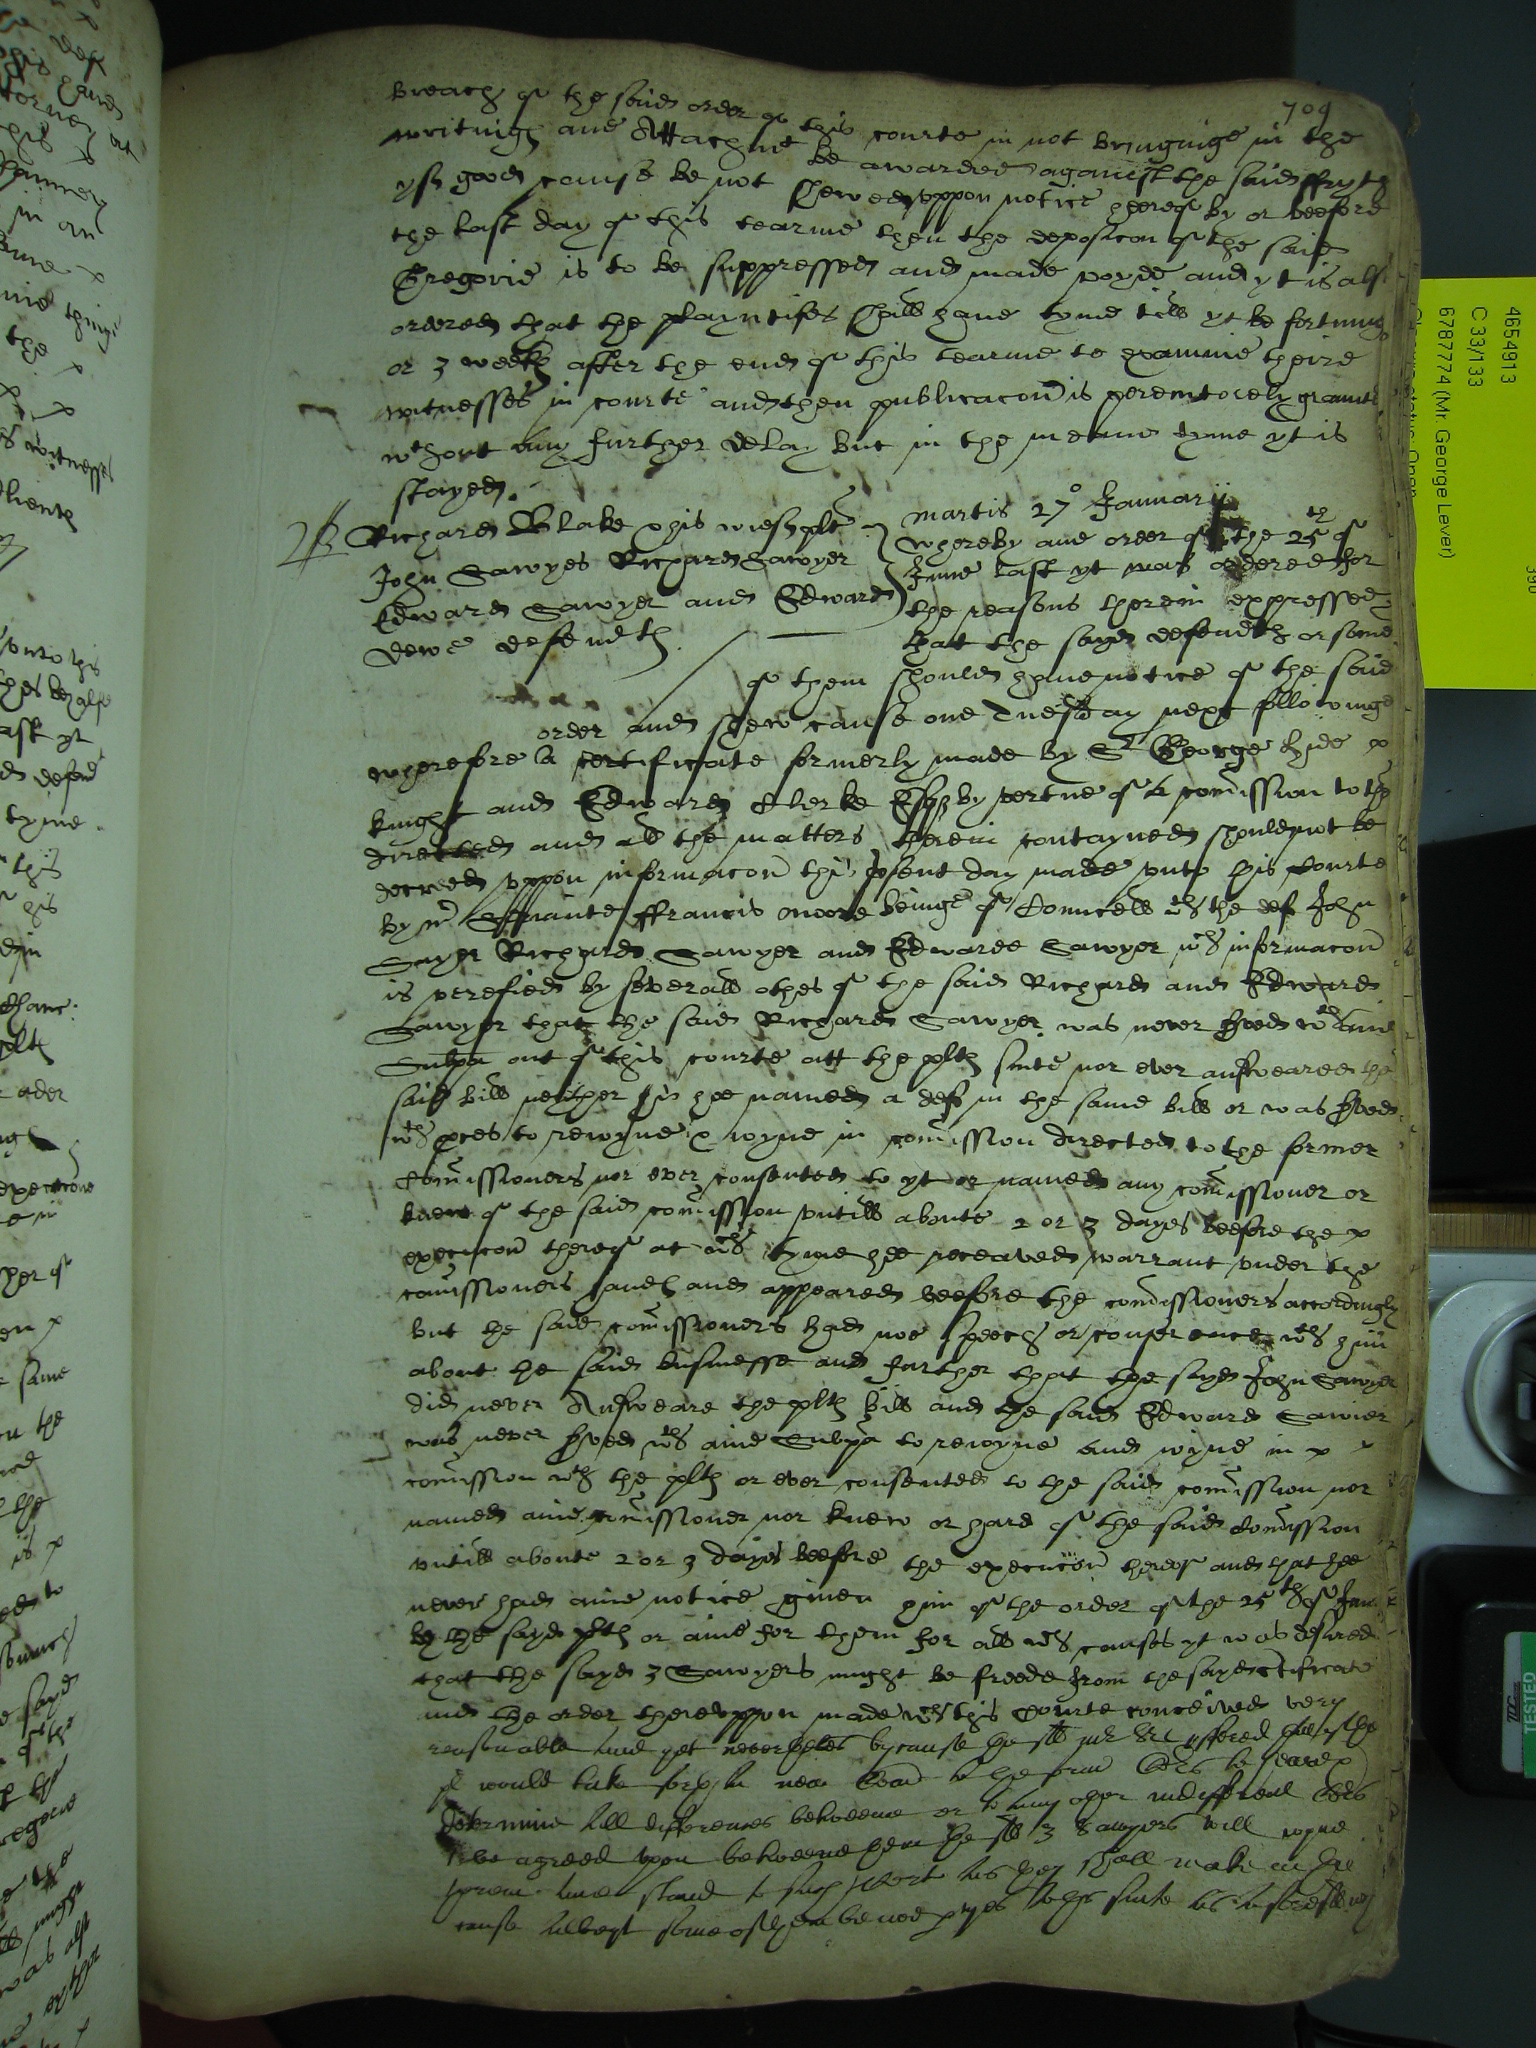 709
breach of the said order of this courte in not bringinge in the
writings and Attachmt be awarded against the said ffryth
yf good cause be not shewed uppon notice hereof by or beefore
the last day of this tearme then the deposicon of the said
Gregorie is to be suppressed and made voyde and yt is also
ordered that the playntifes shall have tyme till yt be fortnight
or 3 weeks after the end of this tearme to examine theire
witnesses in courte and then publicacon is peremtorely graunted
wthout any further delay but in the meane tyme yt is
stayed.
Martis 27o Januarij
Richard Blake & his wief plts
John Sawyer Richard Sawyer
Edward Sawyer and Edward
Dewe defendts
Whereby and order of the 25th of
June last yt was ordered for
the reasons therein expressed
that the sayd defendts or some
of them should have notice of the said
order and shew cause one Tuesday next followinge
wherefore a certificate formerly made by Sr George Hide x
knight and Edward Clerke Esqr by vertue of a comission to them
directed and all the matters therein contayned should not be
decreed uppon informacon this psent day made unto this Courte
by mr Serjiante ffrancis Moore beinge of Councell wth the def John
Sayer Richard Sawyer and Edwarde Sawyer wch informacon
is verefied by severall othes of the said Richard and Edward
Sawyer that the said Richard Sawyer was never served wth anie
Subpa out of this courte att the plts suite nor ever answeared the
said bill neither is hee named a deft in the same bill or was served
wth pces to rejoyne & joyne in comission directed to the former
Comissioners nor ever consented to yt or named any comissioner or
knew of the said comission untill aboute 2 or 3 dayes beefore the x
execucon thereof at wch tyme hee receaved warrant under the
comissioners hands and appeared beefore the comissioners accordingly
but the said comissioners had noe speech or conference wth him
about the said businesse and further that the sayd John Sawyer
did never Answeare the plts bill and the said Edward Sawier
was never served wth anie Subpa to rejoyne and joyne in x x
comission wth the plts or ever consented to the said comission nor
named anie comissioner nor knew or hard of the said Comission
untill aboute 2 or 3 dayes beefore the execucon thereof and that hee
never had anie notice given him of the order of the 25th of June
by the sayd plts or anie for them for all wch causes yt was desired
that the sayd 3 Sawyers might be freede from the sayd certificate
and the order thereuppon made wch this Courte conceived very
reasonable and yet neverthles bycause the sd mr Sert offered that yf the
pl would take forth a new Com to the former Coms to heare &
determine all differences betweene or to any other indifferent Coms
to be agreed upon betweene them the sd 3 Sawyers will joyne
therein and stand to such order as they shall make in the
cause albeyt some of them be noe ptyes to the suite as aforesd